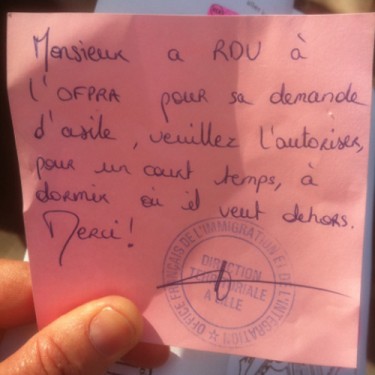 Monsieur a RDV à
l'OFPRA pour sa demande
d'asile, veuillez l'autoriser,
pour un court temps, à
dormir où il veut dehors.
Merci!
OFFICE FRANÇAIS DE L'IMMIGRATION ET DE L'INTÉGRATION
DIRECTION
TERRITORIALE